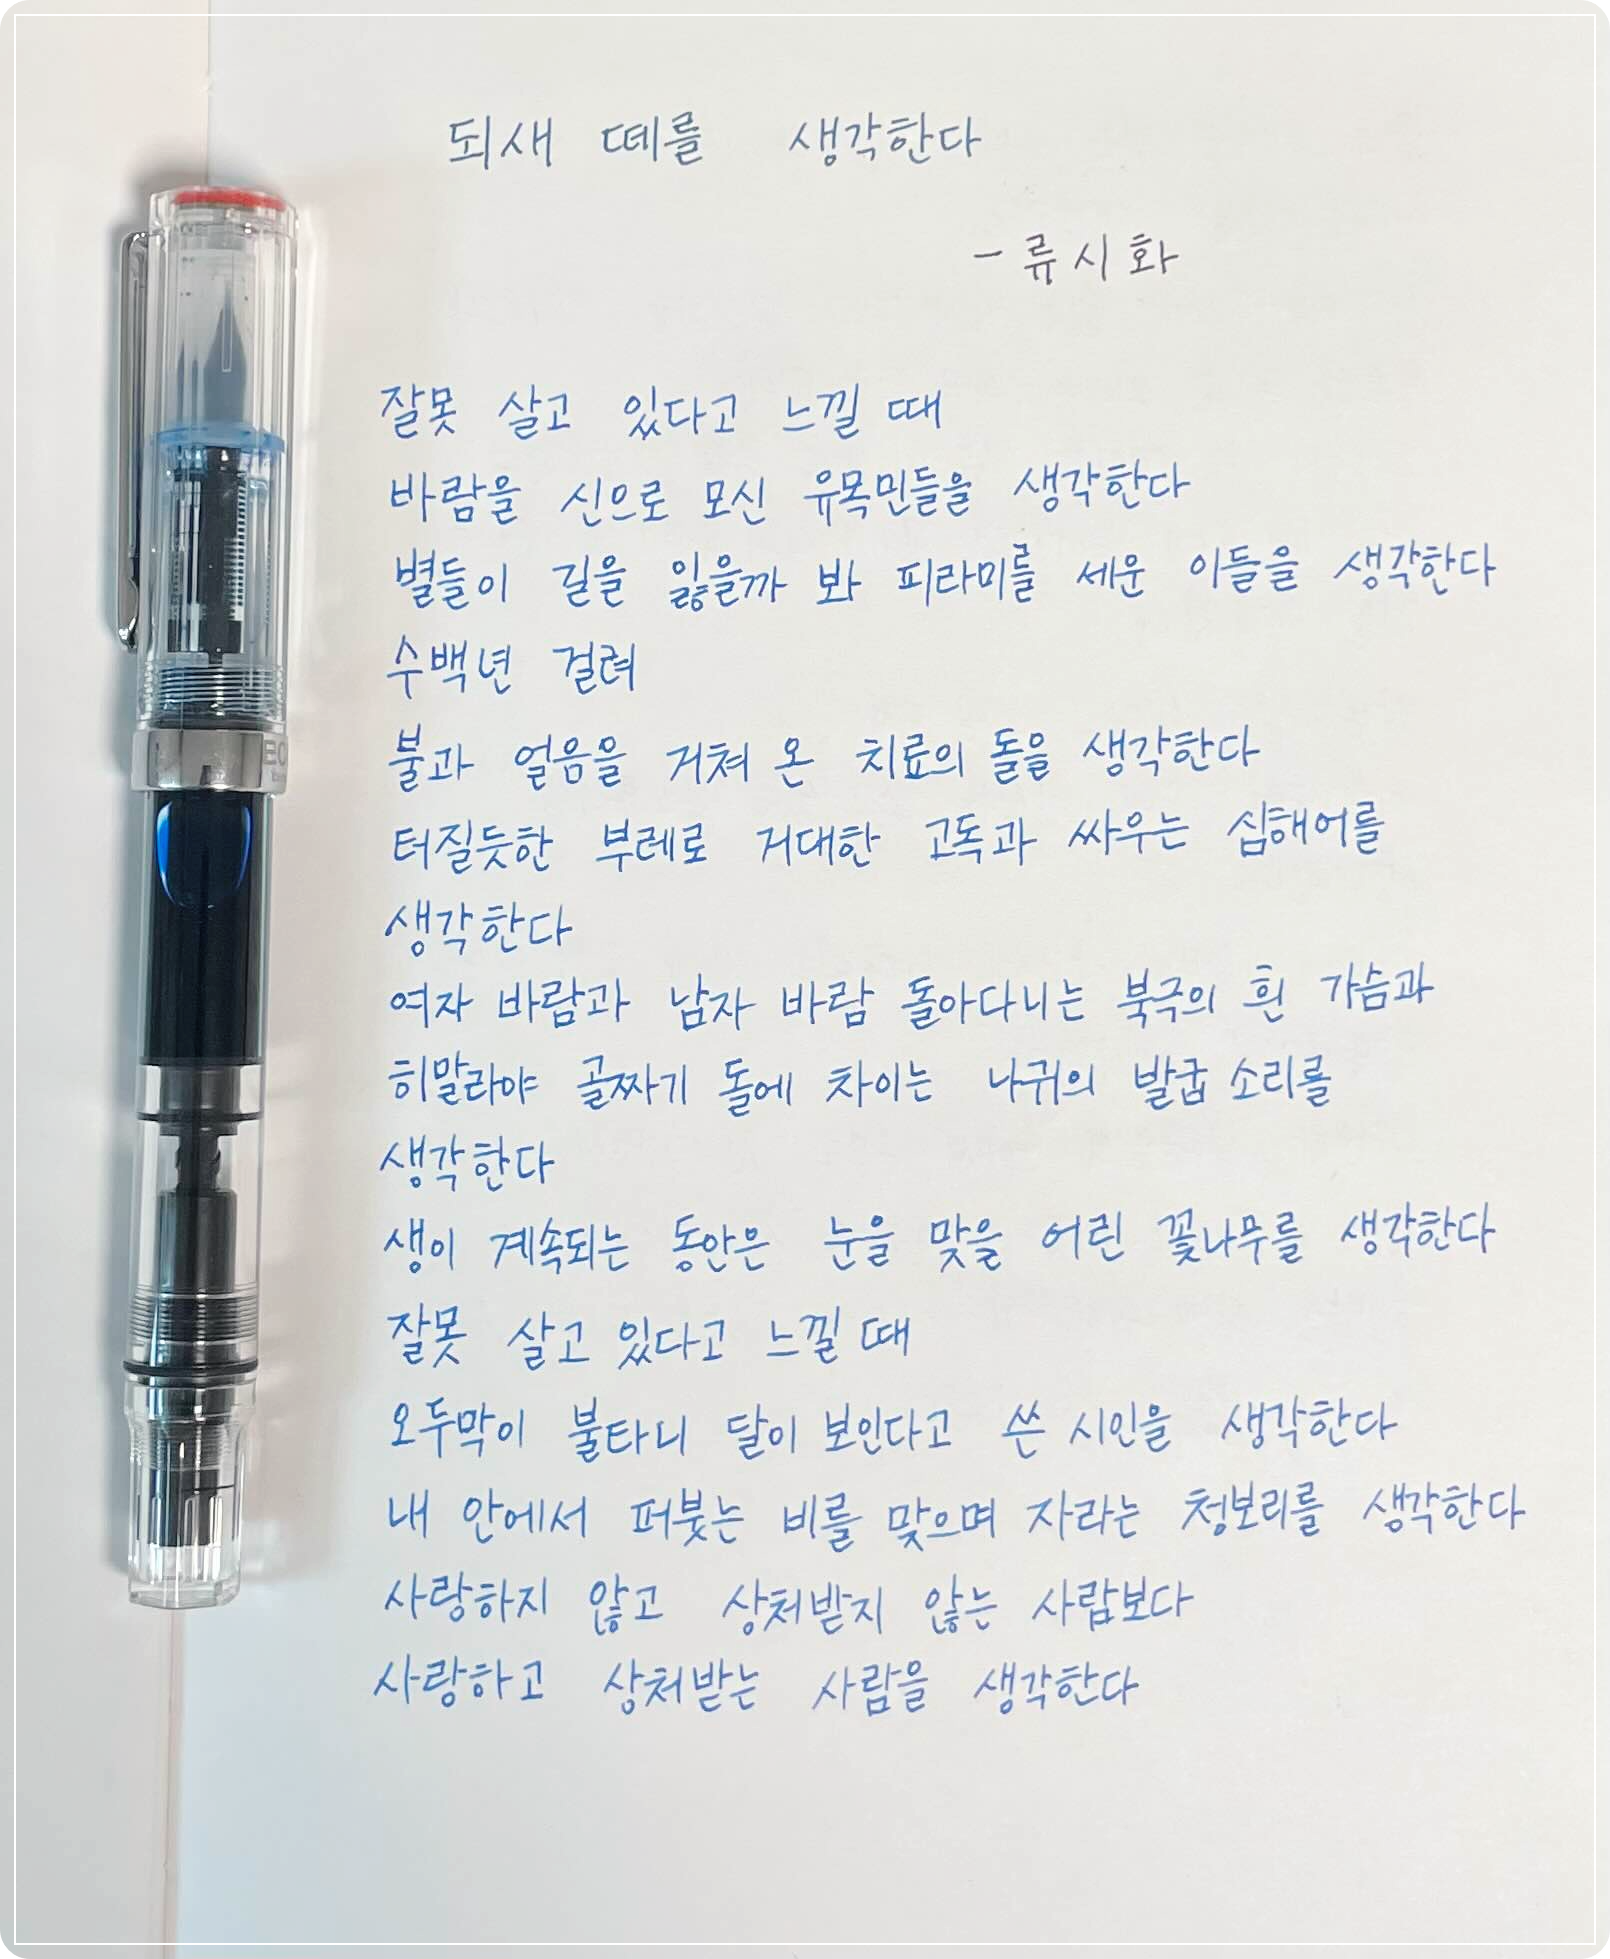 되새 떼를 생각한다
- 류시화
잘못 살고 있다고 느낄 때
바람을 신으로 모신 유목민들을 생각한다
별들이 길을 잃을까 봐 피라미를 세운 이들을 생각한다
수백년 걸려
불과 얼음을 거쳐 온 치료의 돌을 생각한다
터질듯한 부레로 거대한 고독과 싸우는 심해어를
생각한다
여자 바람과 남자 바람 돌아다니는 북극의 흰 가슴과
히말라야 골짜기 돌에 차이는 나귀의 발굽 소리를
생각한다
생이 계속되는 동안은 눈을 맞을 어린 꽃나무를 생각한다
잘못 살고 있다고 느낄 때
오두막이 불타니 달이 보인다고 쓴 시인을 생각한다
내 안에서 퍼붓는 비를 맞으며 자라는 청보리를 생각한다
사랑하지 않고 상처받지 않는 사람보다
사랑하고 상처받는 사람을 생각한다